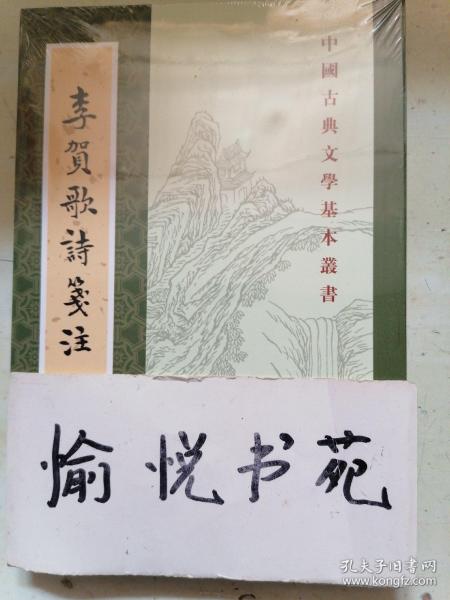 中國古典文學基本叢書
李賀歌詩箋注
愉悦书苑
孔夫子旧书网
www.kongfz.com